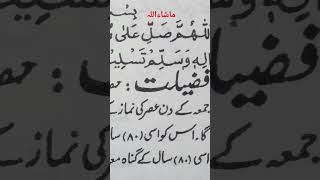 ماشاءاللہ
بِسْمِ
للّٰهُمَّ صَلِّ عَلٰی
اٰلِهٖ وَسَلِّمْ تَسْلِيْ
فضیلت :
جمعہ کے دن عصر کی نماز کے
گا۔ اس کو اسی (۸۰) سا
اسی (۸۰) سال کے گناہ مع